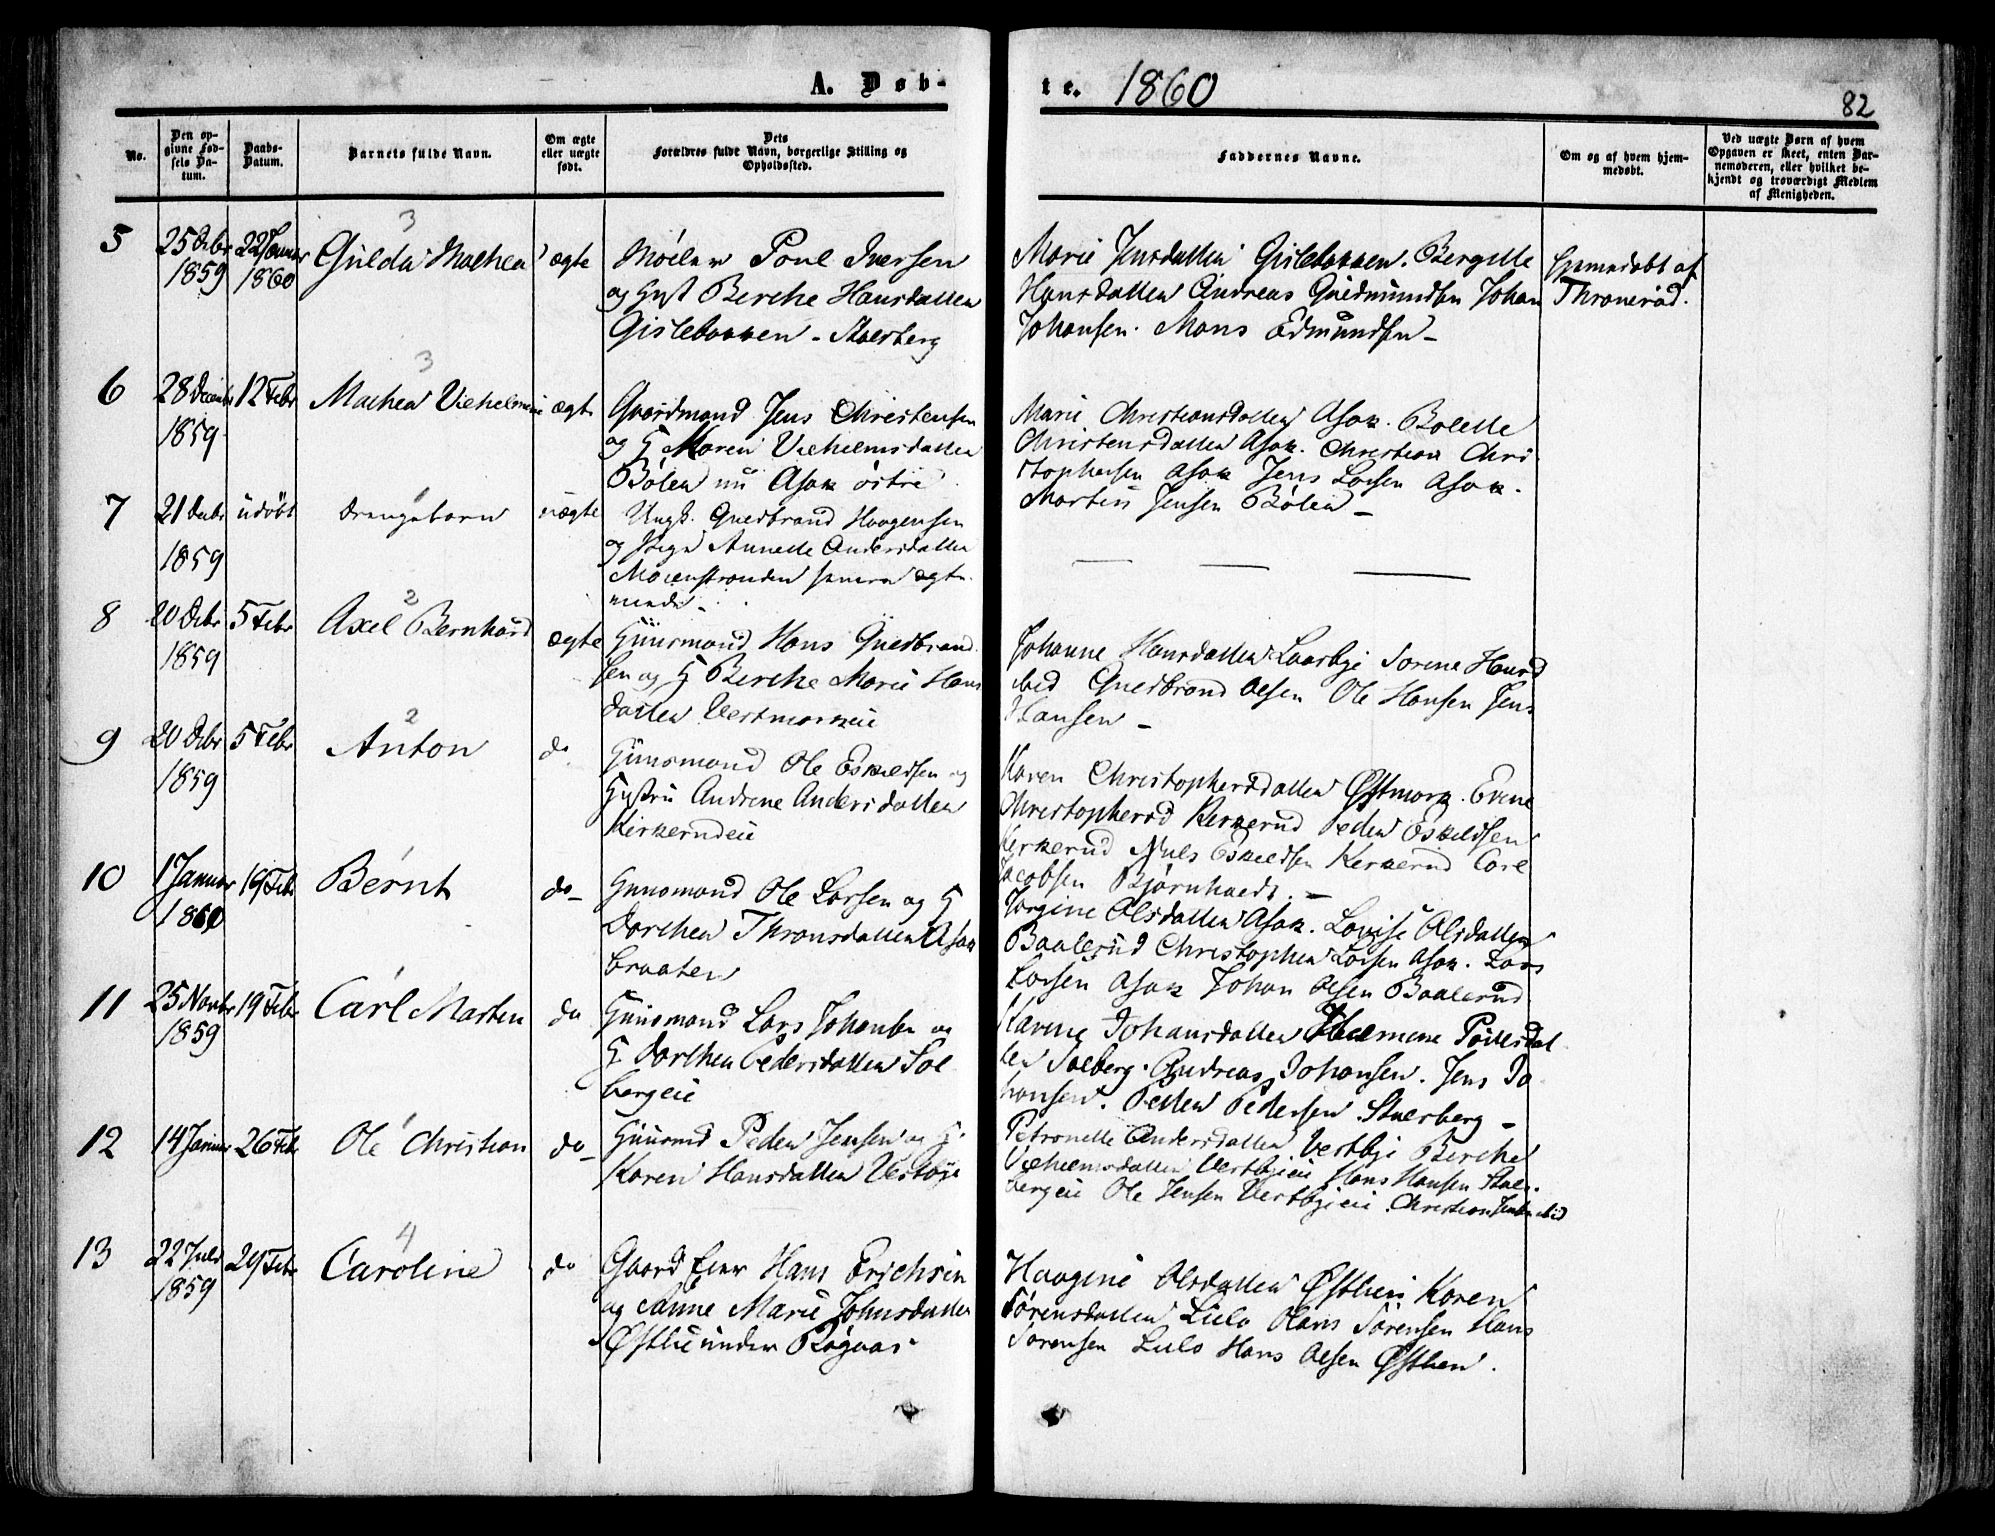 A. Døb-
te. 1860
82
No.
Den op-
givne Fød-
sels Da-
tum.
Daabs-
Datum.
Barnets fulde Navn.
Om ægte
eller uægte
født.
Dets
Forældres fulde Navn, borgerlige Stilling og
Opholdssted.
Faddernes Navne.
Om og af hvem hjem-
medøbt.
Ved uægte Børn af hvem
Opgaven er skeet, enten Bar-
nemoderen, eller hvilket be-
kjendt og troværdigt Medlem
af Menigheden.
3
5 25 Decbr 22 Januar Gulda Mathea ægte Poul Iversen
1859 1860 og Hust Berthe Hansdatter
Gislebakken - Skaerberg
Marie Jensdatter Gislebakken. Bergitte
Hansdatter Andreas Gudmundsen Johan
Johansen. Mons Edmundsen -
Hjemmedøbt af
3
6 28 Decembr 12 Febr Mathea Vilhelmine ægte Gaardmand Jens Christensen
1859 og H Maren Vilhelmsdatter
Bølen nu Asak østre
Marie Christiansdatter Asak. Bolette
Christensdatter Asak. Christian Chri
stophersen Asak Jens Larsen Asak.
Martin Jensen Bølen -
7 21 Decbr udøbt Drengebarn uægte Ungk. Guldbrand Haagensen
1859 og Pige Annette Andersdatter
Moienstranden senere ægte
viede -
2
8 20 Decbr 5 Febr Axel Bernhard ægte Huusmand Hans Guldbrand
1859 sen og H Berthe Marie Hans
datter Vestmarkeie
Johanne Hansdatter Laarbye Sorine Hansd
ibid Guldbrand Olsen Ole Hansen Jens
Hansen -
2
9 20 Decbr 5 Febr Anton do Huusmand Ole Eskildsen og
1859 Hustru Andrine Andersdatter
Kirkerudeie
Karen Christophersdatter Østmork. Evine
Christophersd Kirkerud Peder Eskildsen
Kirkerud Niels Eskildsen Kirkerud Carl
Jacobsen Bjørnholdt. -
10 1 Januar 19 Feb Bernt do - Huusmand Ole Larsen og H
1860 Dorthea Thronsdatter Asak
braaten
Jorgine Olsdatter Asak. Lovise Olsdatter
Baalerud Christopher Larsen Asak. Lars
Larsen Asak Johan Olsen Baalerud
11 25 Novbr 19 Feb Carl Martin do Huusmand Lars Johansen og
1859 H. Dorthea Pedersdatter Sol
bergeie
Karine Johansdatter Helmine Poulsdat
ter Solberg. Andreas Johansen. Jens Jo
hansen. Petter Pedersen Stuerberg -
12 14 Januar 26 Feb Ole Christian do - Huusmd Peder Jensen og H.
Karen Hansdatter Vestbye
Petronelle Andersdatter Vestbye Berthe
Vilhelmsdatter Vestbyeie Hans Hansen Skul
bergeie Ole Jensen Vestbyeie. Christian Jensen ibid
4
13 22 Juli 29 Febr Caroline do Gaard Eier Hans Erichsen
1859 og Anne Marie Johnsdatter
Østlie under Røgnas
Haagine Olsdatter Østlien Karen
Sørensdatter Lulo Hans Sørensen Hans
Sorensen Lulo Hans Olsen Østlien.